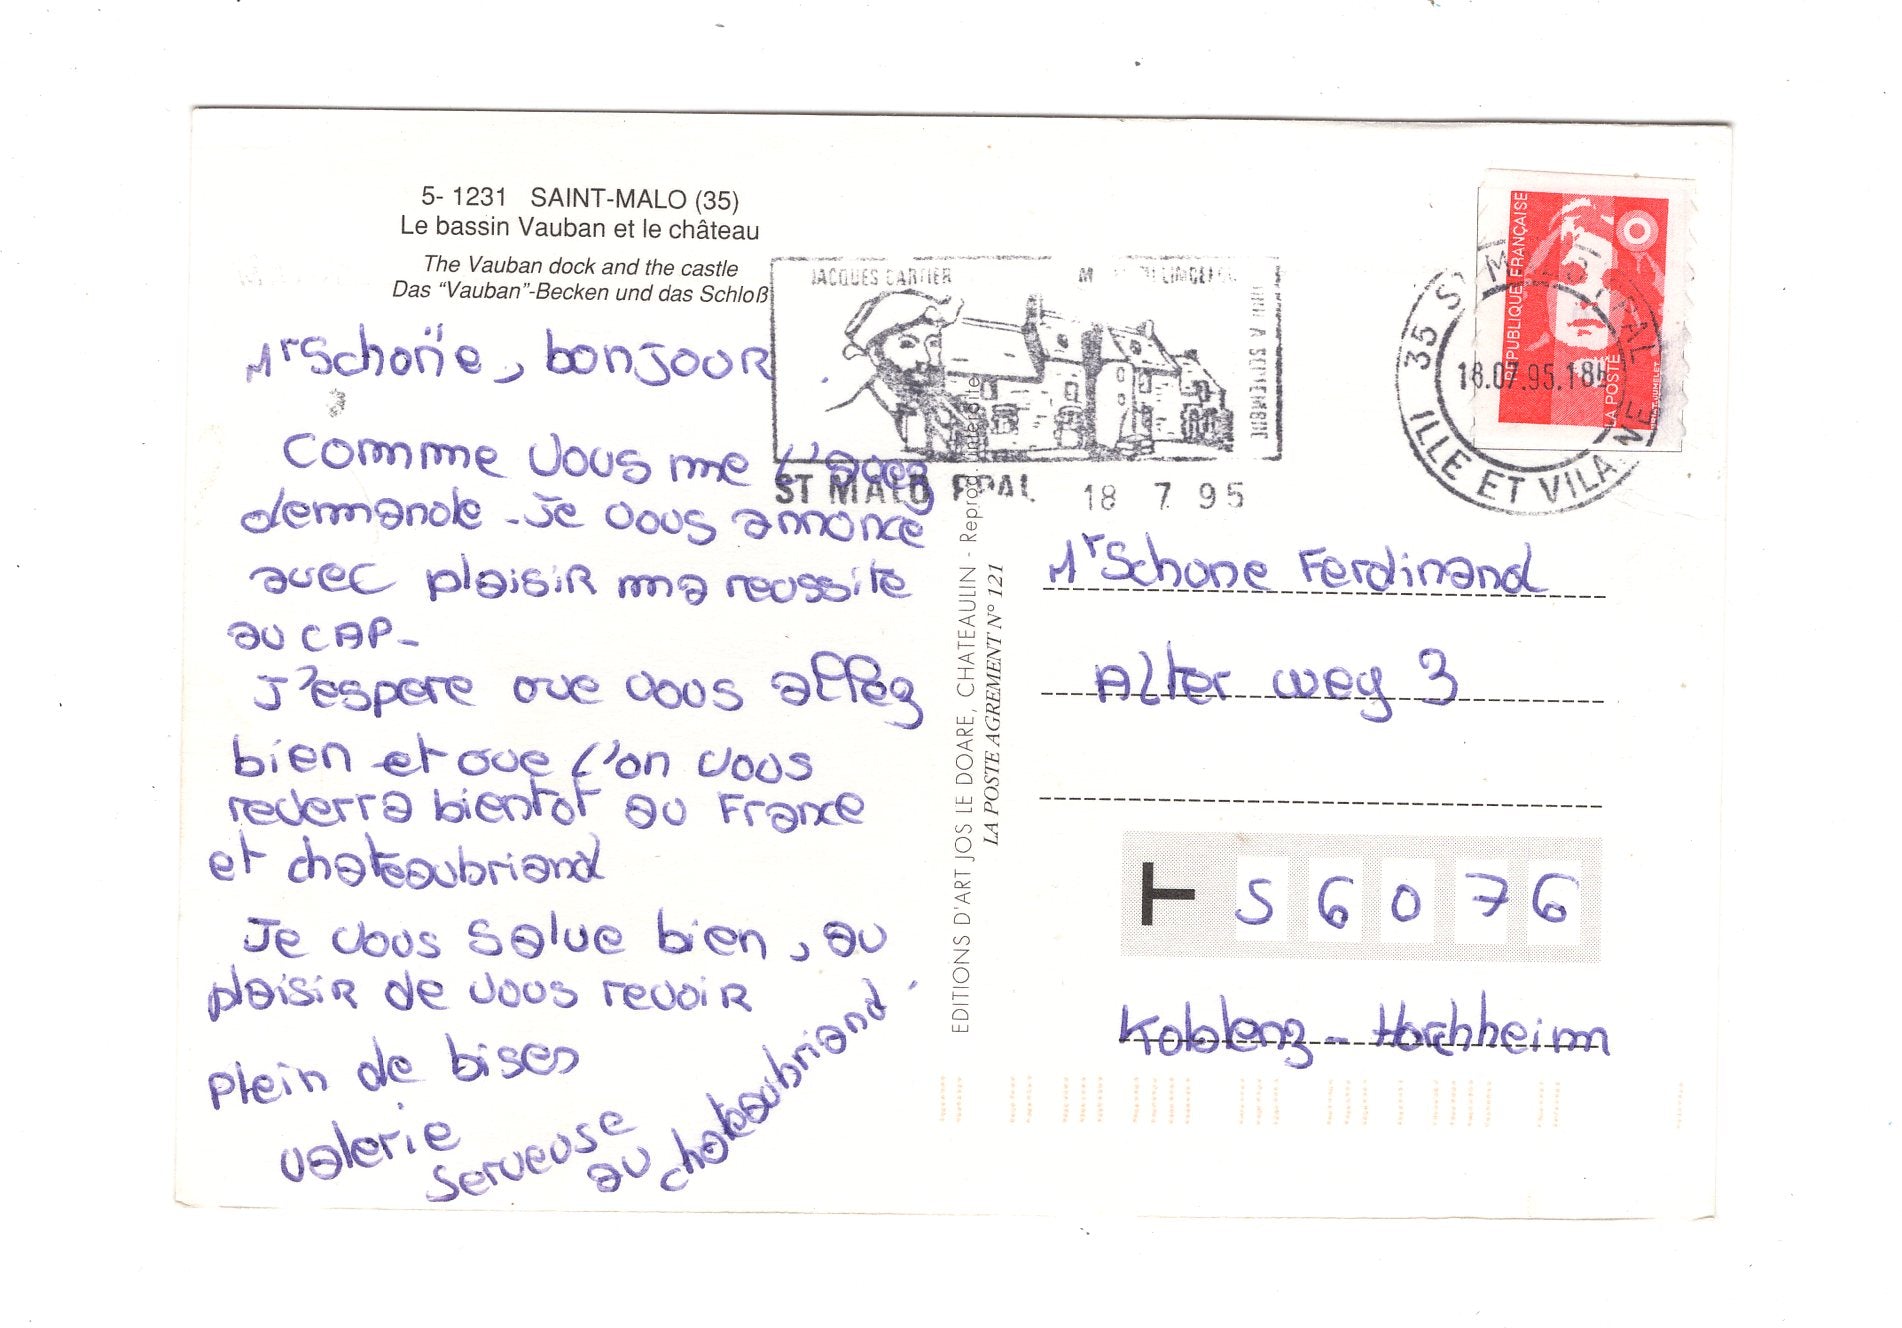 5- 1231 SAINT-MALO (35)
Le bassin Vauban et le château
The Vauban dock and the castle
Das “Vauban”-Becken und das Schloß
Mr Schöne, bonjour.
Comme vous me l'avez
demande - Je vous annonce
avec plaisir ma reussite
au CAP-
J'espere que vous allez
bien et que l'on vous
reverra bientot au France
et chateaubriand
Je vous salue bien, au
plaisir de vous revoir
plein de bises
valerie
serveuse
au chateaubriand
JACQUES CARTIER
ST MALO PPAL 18 7 95
EDITIONS D'ART JOS LE DOARE, CHATEAULIN - Reprod. interdite
LA POSTE AGREMENT N° 121
35 ST MALO PPAL
18.07.95.18H
ILLE ET VILAINE
REPUBLIQUE FRANÇAISE
LA POSTE
Mr Schone Ferdinand
Alter weg 3
T 56076
Koblenz - Horchheim